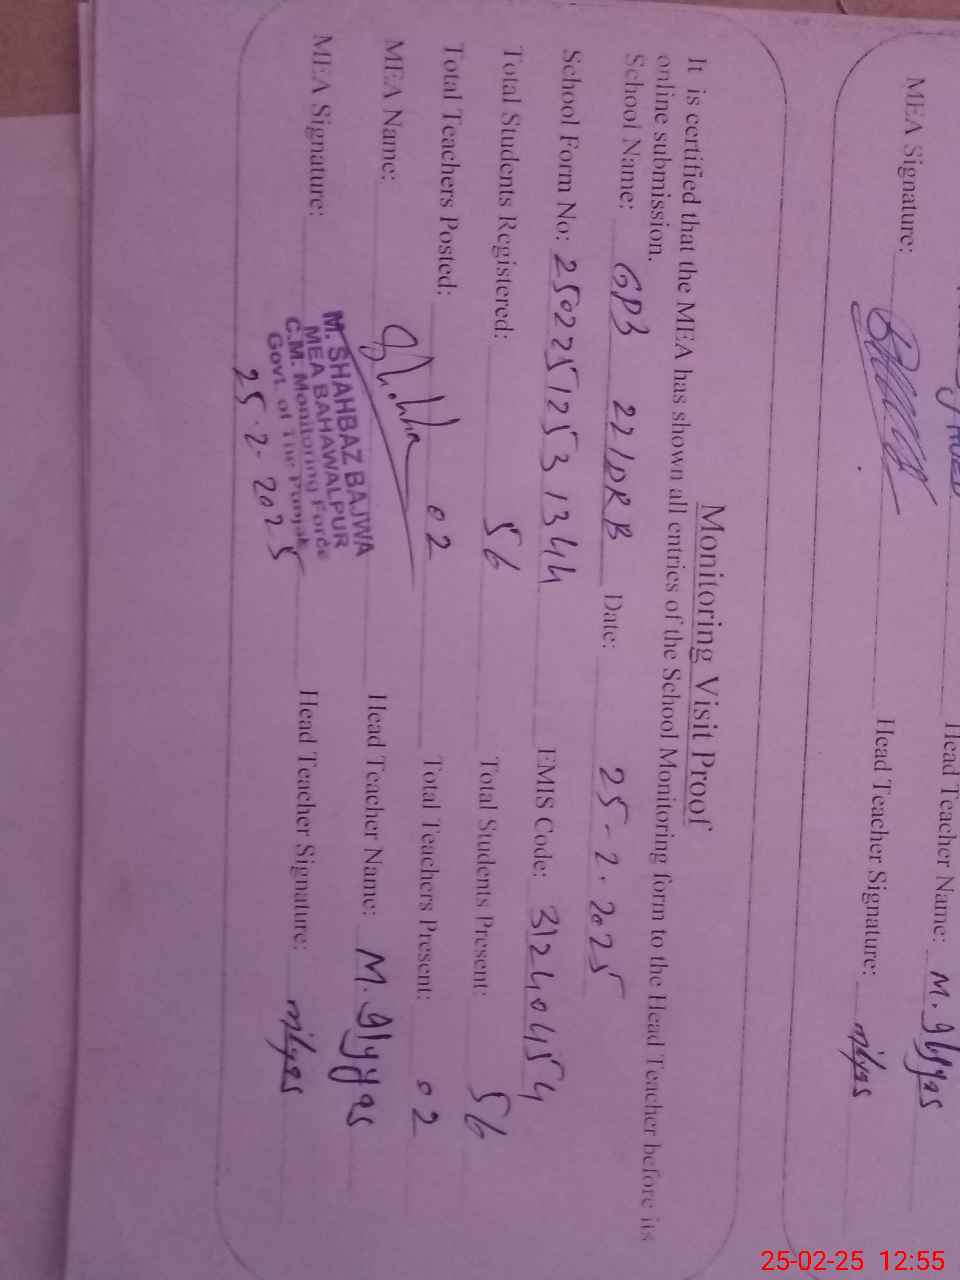 Head Teacher Name: M. Ilyyas
MEA Signature: Head Teacher Signature: milyas
Monitoring Visit Proof
It is certified that the MEA has shown all entries of the School Monitoring form to the Head Teacher before its
online submission.
School Name: GPS 22/DRB Date: 25-2-2025
School Form No: 25022512531344 EMIS Code: 31240454
Total Students Registered: 56 Total Students Present: 56
Total Teachers Posted: 02 Total Teachers Present: 02
MEA Name: Head Teacher Name: M. Ilyyas
MEA Signature: Head Teacher Signature: milyas
M. SHAHBAZ BAJWA
MEA BAHAWALPUR
C.M. Monitoring Force
Govt. of The Punjab
25-2-2025
25-02-25 12:55